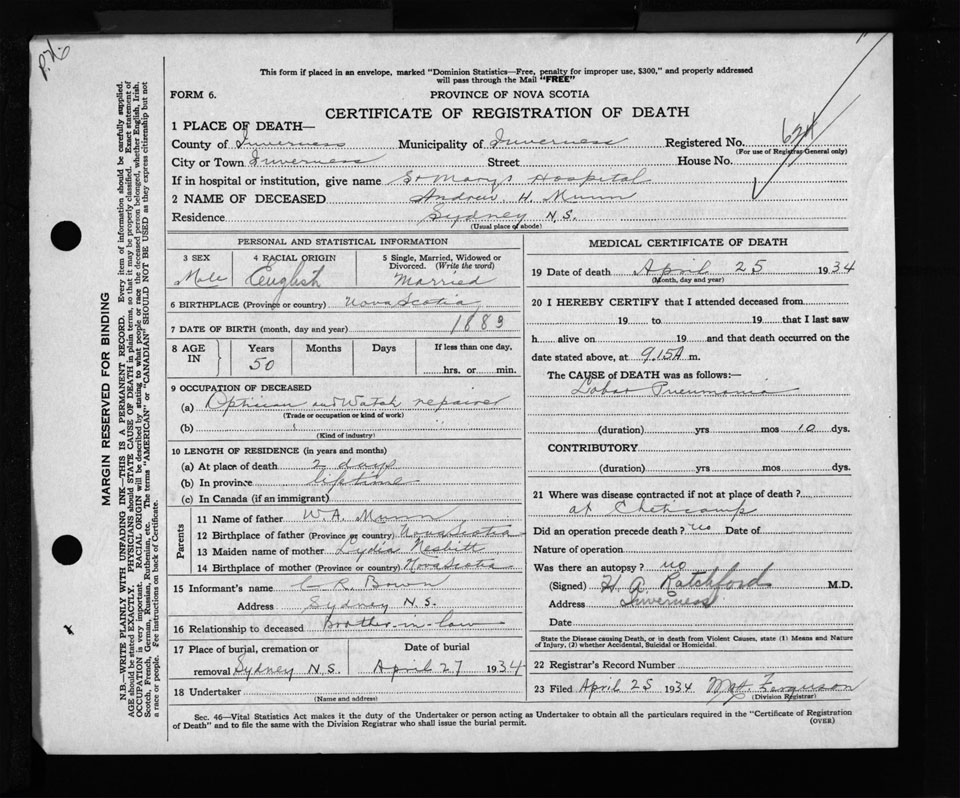 This form if placed in an envelope, marked "Dominion Statistics—Free, penalty for improper use, $300," and properly addressed
will pass through the Mail "FREE"
FORM 6.
PROVINCE OF NOVA SCOTIA
CERTIFICATE OF REGISTRATION OF DEATH
1 PLACE OF DEATH—
County of Inverness Municipality of Inverness Registered No.
(For use of Registrar General only)
City or Town Inverness Street House No.
If in hospital or institution, give name St Marys Hospital
2 NAME OF DECEASED Andrew H. Munn
Residence Sydney N.S.
(Usual place of abode)
PERSONAL AND STATISTICAL INFORMATION
3 SEX 4 RACIAL ORIGIN 5 Single, Married, Widowed or
Divorced. (Write the word)
Male English Married
6 BIRTHPLACE (Province or country) Nova Scotia
7 DATE OF BIRTH (month, day and year) 1883
8 AGE IN Years Months Days If less than one day,
50 hrs. or min.
9 OCCUPATION OF DECEASED
(a) Optician and Watch repairer
(Trade or occupation or kind of work)
(b)
(Kind of industry)
10 LENGTH OF RESIDENCE (in years and months)
(a) At place of death 2 days
(b) In province lifetime
(c) In Canada (if an immigrant)
Parents
11 Name of father W.A. Munn
12 Birthplace of father (Province or country) Nova Scotia
13 Maiden name of mother Lydia Nesbitt
14 Birthplace of mother (Province or country) Nova Scotia
15 Informant's name C R. Bown
Address Sydney N.S.
16 Relationship to deceased Brother-in-law
17 Place of burial, cremation or Date of burial
removal Sydney N.S. April 27 1934
18 Undertaker
(Name and address)
MEDICAL CERTIFICATE OF DEATH
19 Date of death April 25 1934
(Month, day and year)
20 I HEREBY CERTIFY that I attended deceased from
19 to 19 that I last saw
h alive on 19 and that death occurred on the
date stated above, at 9.15A m.
The CAUSE of DEATH was as follows:—
Lobar Pneumonia
(duration) yrs mos 10 dys.
CONTRIBUTORY
(duration) yrs mos dys.
21 Where was disease contracted if not at place of death?
at Cheticamp
Did an operation precede death? no Date of
Nature of operation
Was there an autopsy? no
(Signed) H. A. Ratchford M.D.
Address Inverness
Date
State the Disease causing Death, or in death from Violent Causes, state (1) Means and Nature
of Injury, (2) whether Accidental, Suicidal or Homicidal.
22 Registrar's Record Number
23 Filed April 25 1934 Ferguson
(Division Registrar)
Sec. 46—Vital Statistics Act makes it the duty of the Undertaker or person acting as Undertaker to obtain all the particulars required in the "Certificate of Registration
of Death" and to file the same with the Division Registrar who shall issue the burial permit.
(OVER)
MARGIN RESERVED FOR BINDING
N.B.—WRITE PLAINLY WITH UNFADING INK—THIS IS A PERMANENT RECORD. Every item of information should be carefully supplied.
AGE should be stated EXACTLY. PHYSICIANS should STATE CAUSE OF DEATH in plain terms, so that it may be properly classified. Exact statement of
OCCUPATION is very important. RACIAL ORIGIN will be described by stating to what people or race the deceased person belonged, whether English, Irish,
Scotch, French, German, Russian, Ruthenian, etc. The terms "AMERICAN" or "CANADIAN" SHOULD NOT BE USED as they express citizenship but not
a race or people. Fee instructions on back of Certificate.